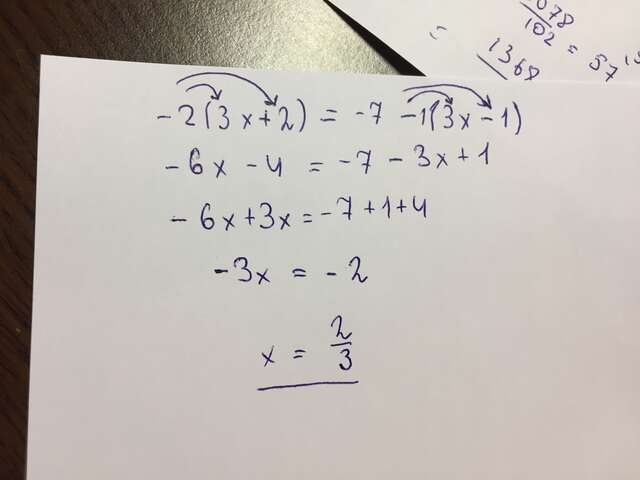 -2(3x+2) = -7 -1(3x-1)
-6x -4 = -7 -3x+1
-6x+3x = -7+1+4
-3x = -2
x = 2/3
1368
102 = 57